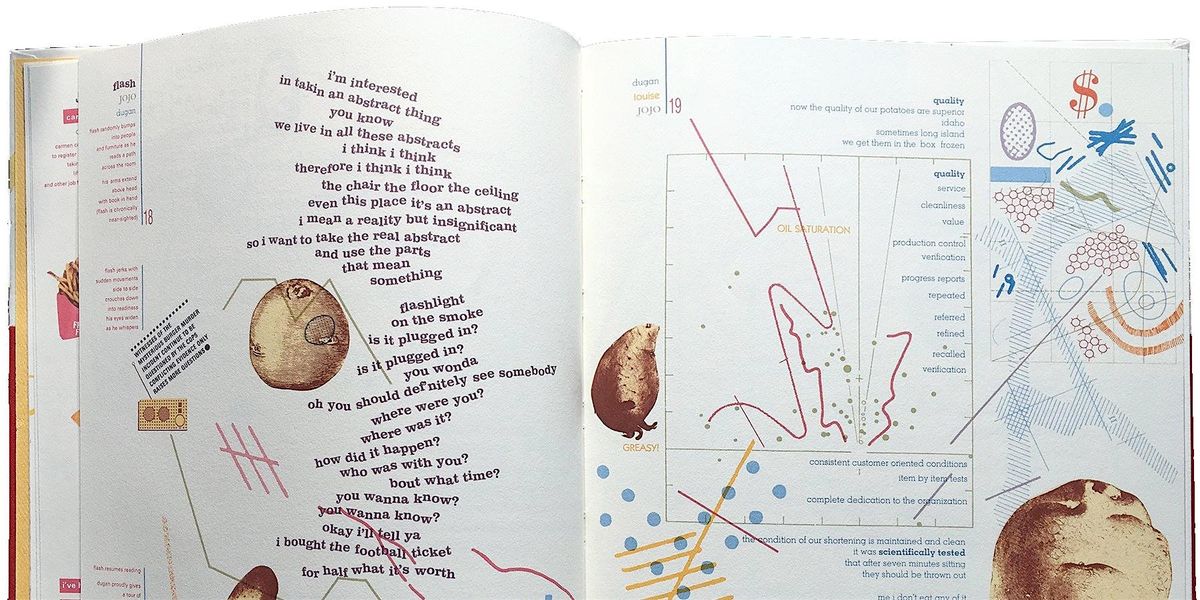 flash
jojo
dugan
flash randomly bumps
into people
and furniture as he
reads a path
across the room
his arms extend
above head
with book in hand
(flash is chronically
near-sighted)
18
flash jerks with
sudden movements
side to side
crouches down
into readiness
his eyes widen
as he whispers
WITNESSES OF THE
MYSTERIOUS BURGER MURDER
INCIDENT CONTINUE TO BE
QUESTIONED BY THE COPS
CONFLICTING EVIDENCE ONLY
RAISES MORE QUESTIONS
flash resumes reading
dugan proudly gives
a tour of
i'm interested
in takin an abstract thing
you know
we live in all these abstracts
i think i think
therefore i think i think
the chair the floor the ceiling
even this place it's an abstract
i mean a reality but insignificant
so i want to take the real abstract
and use the parts
that mean
something
flashlight
on the smoke
is it plugged in?
is it plugged in?
you wonda
oh you should def'nitely see somebody
where were you?
where was it?
how did it happen?
who was with you?
bout what time?
you wanna know?
you wanna know?
okay i'll tell ya
i bought the football ticket
for half what it's worth
dugan
louise
jojo
19
quality
now the quality of our potatoes are superior
idaho
sometimes long island
we get them in the box frozen
quality
service
cleanliness
value
production control
verification
progress reports
repeated
referred
refined
recalled
verification
OIL SATURATION
GREASY!
consistent customer oriented conditions
item by item tests
complete dedication to the organization
the condition of our shortening is maintained and clean
it was scientifically tested
that after seven minutes sitting
they should be thrown out
me i don't eat any of it
$
19